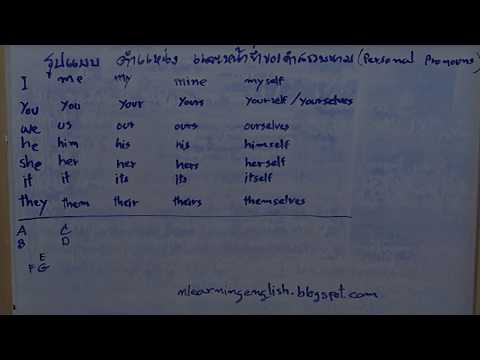 รูปแบบ ตำแหน่ง และหน้าที่ของคำสรรพนาม (Personal Pronouns)
I me my mine myself
You you your yours yourself/yourselves
we us our ours ourselves
he him his his himself
she her her hers herself
it it its its itself
they them their theirs themselves
A C
B D
E
F G
mlearningenglish.blogspot.com